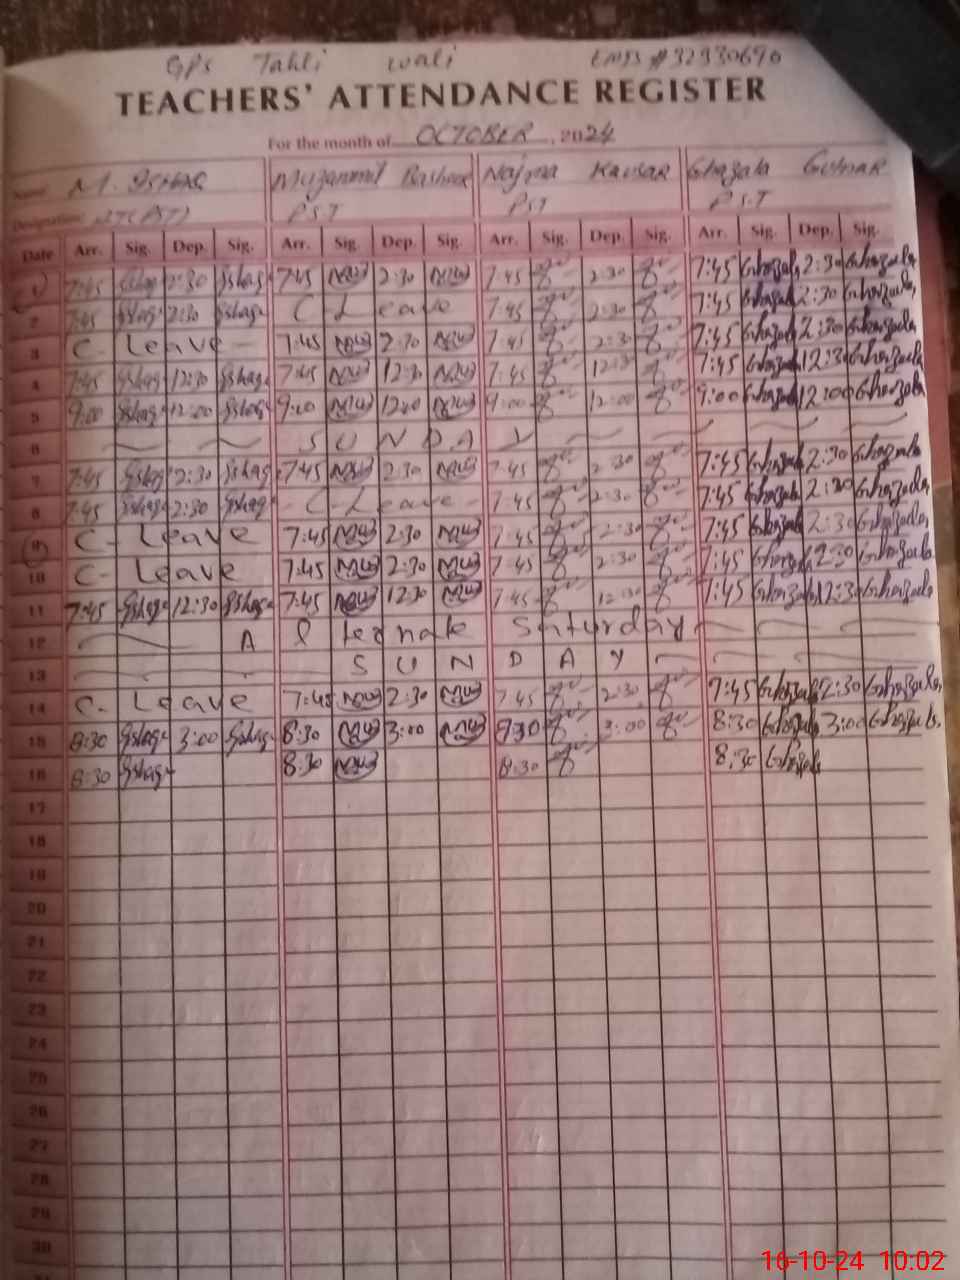 GPS Tahli wali EMIS # 32330690
TEACHERS' ATTENDANCE REGISTER
For the month of OCTOBER, 2024
Name M. ISHAQ Muzammil Basheer Najma Kausar Ghazala Gulnar
Designation PST PST P.S.T
Date Arr. Sig. Dep. Sig. Arr. Sig. Dep. Sig. Arr. Sig. Dep. Sig. Arr. Sig. Dep. Sig.
1 7:45 Ishaq 2:30 Ishaq 7:45 2:30 7:45 2:30 7:45 Ghazala 2:30 Ghazala
2 7:45 Ishaq 2:30 Ishaq C Leave 7:45 2:30 7:45 Ghazala 2:30 Ghazala
3 C- Leave 7:45 2:30 7:45 2:30 7:45 Ghazala 2:30 Ghazala
4 7:45 Ishaq 12:30 Ishaq 7:45 12:30 7:45 12:30 7:45 Ghazala 12:30 Ghazala
5 9:00 Ishaq 12:00 Ishaq 9:00 12:00 9:00 12:00 9:00 Ghazala 12:00 Ghazala
6 SUNDAY
7 7:45 Ishaq 2:30 Ishaq 7:45 2:30 7:45 2:30 7:45 Ghazala 2:30 Ghazala
8 7:45 Ishaq 2:30 Ishaq - C- Leave - 7:45 2:30 7:45 Ghazala 2:30 Ghazala
9 C- Leave 7:45 2:30 7:45 2:30 7:45 Ghazala 2:30 Ghazala
10 C- Leave 7:45 2:30 7:45 2:30 7:45 Ghazala 2:30 Ghazala
11 7:45 Ishaq 12:30 Ishaq 7:45 12:30 7:45 12:30 7:45 Ghazala 12:30 Ghazala
12 Alternate Saturday
13 SUNDAY
14 C- Leave 7:45 2:30 7:45 2:30 7:45 Ghazala 2:30 Ghazala
15 8:30 Ishaq 3:00 Ishaq 8:30 3:00 3:00 8:30 Ghazala 3:00 Ghazala
16 8:30 Ishaq 8:30 8:30 8:30 Ghazala
17
18
19
20
21
22
23
24
25
26
27
28
29
30
16-10-24 10:02